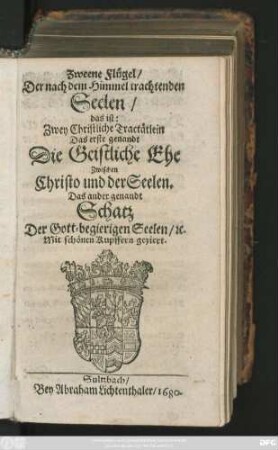 Zweene Flügel/
Der nach dem Himmel trachtenden
Seelen/
das ist:
Zwey Christliche Tractätlein
Das erste genandt
Die Geistliche Ehe
Zwischen
Christo und der Seelen.
Das ander genandt
Schatz
Der Gott-begierigen Seelen/ꝛc.
Mit schönen Kupffern gezieret.
Sultzbach/
Bey Abraham Lichtenthaler/1680.